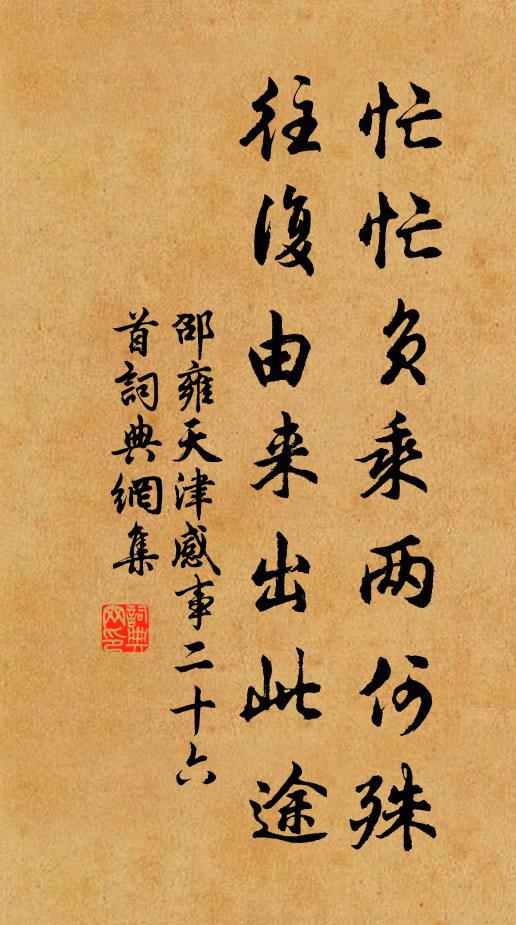 忙忙负乘两何殊
往復由来出此途
邵雍天津感事二十六
首詞典網集
詞典網印